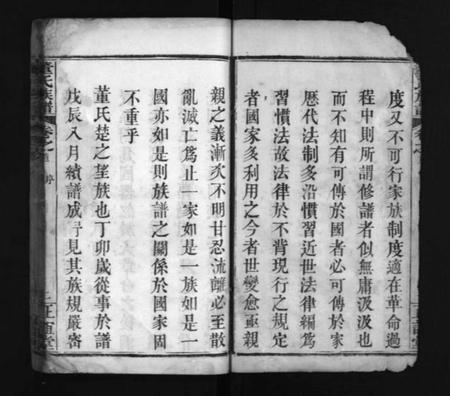 度又不可行家族制度適在革命過
程中則所謂修譜者似無庸汲汲也
而不知有可傳於國者必可傳於家
歷代法制多沿慣習近世法律編爲
習慣法故法律於不背現行之規定
者國家多利用之今者世變愈亟親
親之義漸次不明甘忍流離必至散
亂滅亡爲止一家如是一族如是一
國亦如是則族譜之關係於國家固
不重乎
董氏楚之望族也丁卯歲從事於譜
戊辰八月續譜成予見其族規嚴密
董氏族譜
卷之首
三正直堂